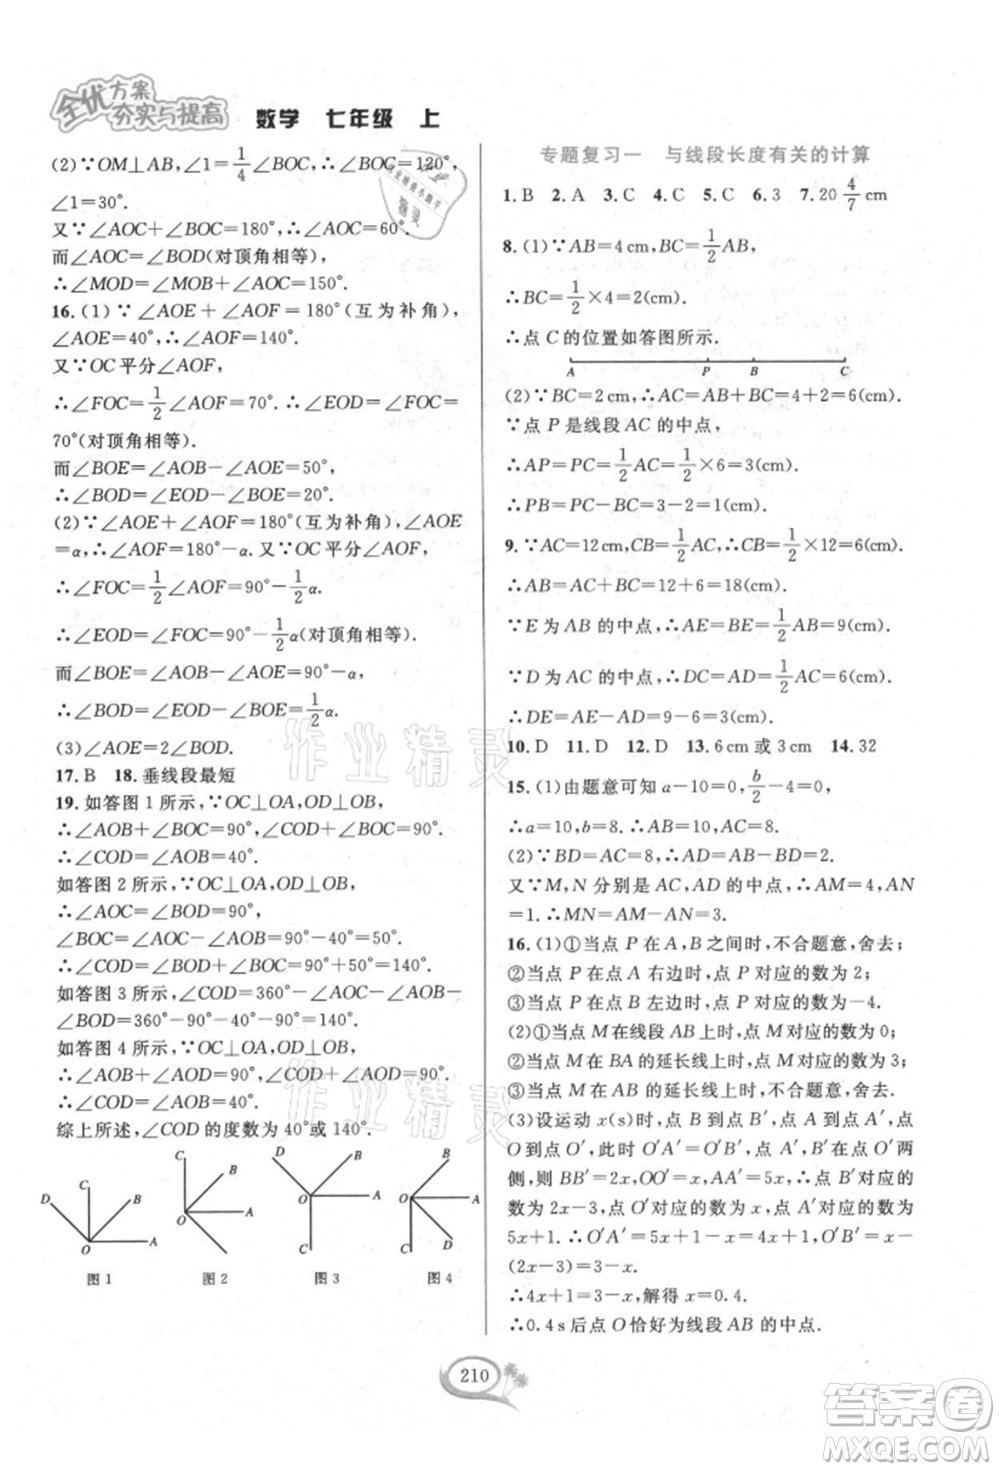 全优方案
夯实与提高
数学 七年级 上
(2)∵OM⊥AB,∠1=1/4∠BOC,∴∠BOC=120°,
∠1=30°.
又∵∠AOC+∠BOC=180°,∴∠AOC=60°.
而∠AOC=∠BOD(对顶角相等),
∴∠MOD=∠MOC+∠AOC=150°.
16.(1)∵∠AOE+∠AOF=180°(互为补角),
∠AOE=40°,∴∠AOF=140°.
又∵OC平分∠AOF,
∴∠FOC=1/2∠AOF=70°.∴∠EOD=∠FOC=
70°(对顶角相等).
而∠BOE=∠AOB-∠AOE=50°,
∴∠BOD=∠EOD-∠BOE=20°.
(2)∵∠AOE+∠AOF=180°(互为补角),∠AOE
=α,∴∠AOF=180°-α.又∵OC平分∠AOF,
∴∠FOC=1/2∠AOF=90°-1/2α.
∴∠EOD=∠FOC=90°-1/2α(对顶角相等).
而∠BOE=∠AOB-∠AOE=90°-α,
∴∠BOD=∠EOD-∠BOE=1/2α.
(3)∠AOE=2∠BOD.
17.B 18.垂线段最短
19.如答图1所示,∵OC⊥OA,OD⊥OB,
∴∠AOB+∠BOC=90°,∠BOC+∠COD=90°.
∴∠COD=∠AOB=40°.
如答图2所示,∵OC⊥OA,OD⊥OB,
∴∠AOC=90°,∠BOD=90°.
∠BOC=∠AOC-∠AOB=90°-40°=50°.
∴∠COD=∠BOD+∠BOC=90°+50°=140°.
如答图3所示,∴∠COD=360°-∠AOC-∠AOB-
∠BOD=360°-90°-40°-90°=140°.
如答图4所示,∵OC⊥OA,OD⊥OB,
∴∠AOD+∠AOB=90°,∠COD+∠AOD=90°.
∴∠COD=∠AOB=40°.
综上所述,∠COD的度数为40°或140°.
D C B O A
图1
C B O A D
图2
D B O A C
图3
C B O A D
图4
专题复习一 与线段长度有关的计算
1.B 2.A 3.C 4.C 5.C 6.3 7.20 4/7cm
8.(1)∵AB=4cm,BC=1/2AB,
∴BC=1/2×4=2(cm).
∴点C的位置如答图所示.
A P B C
(2)∵BC=2cm,∴AC=AB+BC=4+2=6(cm).
∵点P是线段AC的中点,
∴AP=PC=1/2AC=1/2×6=3(cm).
∴PB=PC-BC=3-2=1(cm).
9.∵AC=12cm,CB=1/2AC,∴CB=1/2×12=6(cm).
∴AB=AC+BC=12+6=18(cm).
∵E为AB的中点,∴AE=BE=1/2AB=9(cm).
∵D为AC的中点,∴DC=AD=1/2AC=6(cm).
∴DE=AE-AD=9-6=3(cm).
10.D 11.D 12.D 13.6cm或3cm 14.32
15.(1)由题意可知a-10=0,b/2-4=0,
∴a=10,b=8.∴AB=10,AC=8.
(2)∵BD=AC=8,∴AD=AB-BD=2.
又∵M,N分别是AC,AD的中点,∴AM=4,AN
=1.∴MN=AM-AN=3.
16.(1)①当点P在A,B之间时,不合题意,舍去;
②当点P在点A右边时,点P对应的数为2;
③当点P在点B左边时,点P对应的数为-4.
(2)①当点M在线段AB上时,点M对应的数为0;
②当点M在BA的延长线上时,点M对应的数为3;
③当点M在AB的延长线上时,不合题意,舍去.
(3)设运动x(s)时,点B到点B′,点A到点A′,点
O到点O′,则O′A′=O′B′,点A′,B′在点O′两
侧,则BB′=2x,OO′=x,AA′=5x,∴点B′对应的
数为2x-3,点O′对应的数为x,点A′对应的数为
5x+1.∴O′A′=5x+1-x=4x+1,O′B′=x-
(2x-3)=3-x.
∴4x+1=3-x,解得x=0.4.
∴0.4s后点O恰好为线段AB的中点.
作业精灵
作业精灵
210
答案圈
MXQE.COM